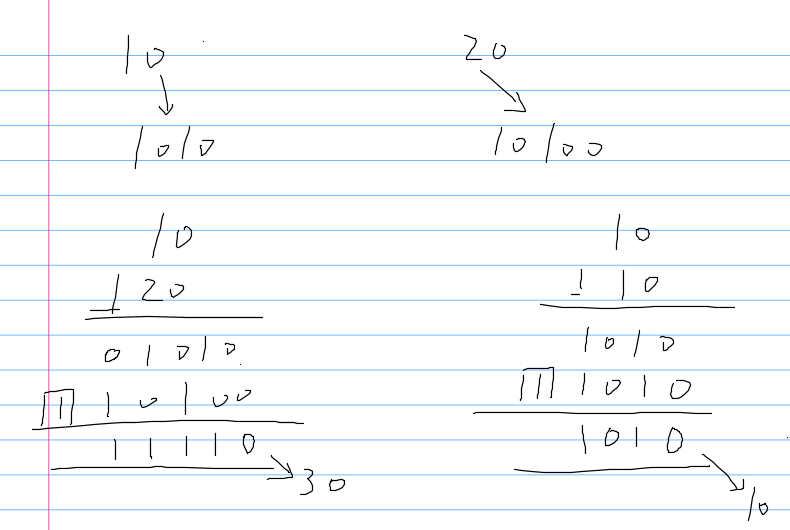 10
1010
20
10100
10
| 20
01010
| 10100
11110
30
10
| 10
1010
| 1010
1010
10